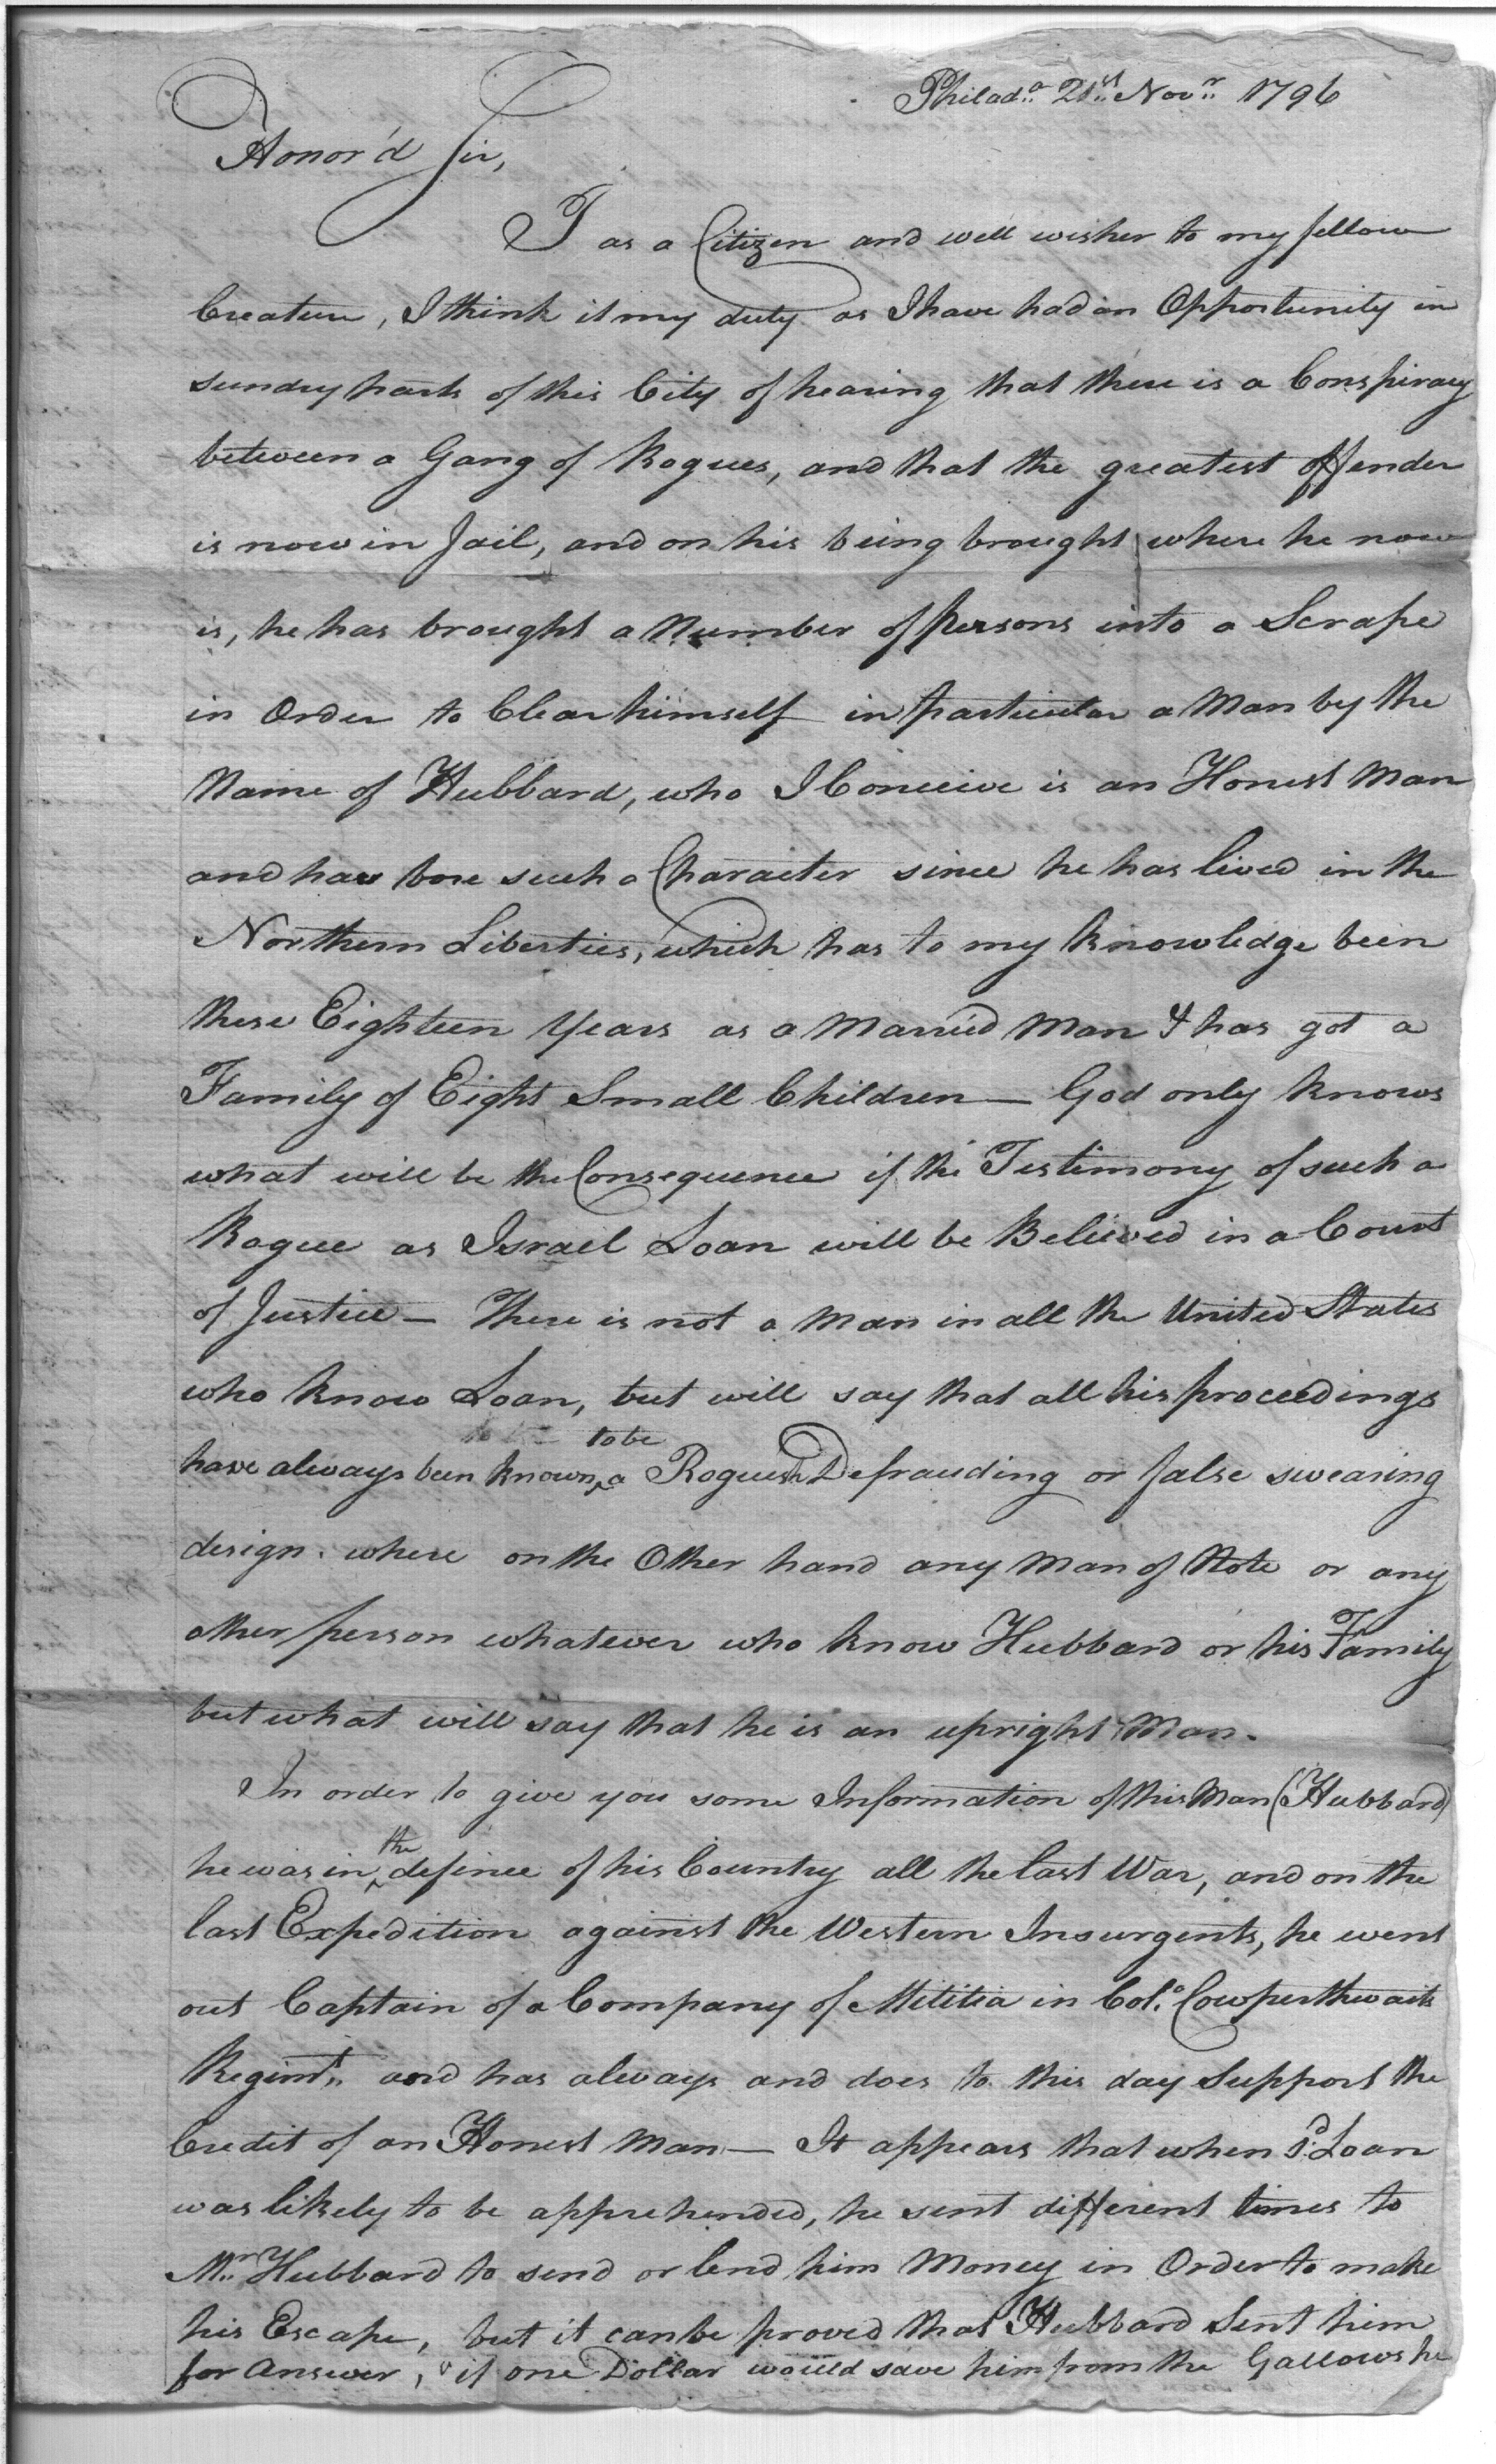 Philad.a 21st Novr 1796
Honor'd Sir,
I as a Citizen and well wisher to my fellow
Creature, I think it my duty as I have had an Opportunity in
sundry parts of this City of hearing that there is a Conspiracy
between a Gang of Rogues, and that the greatest offender
is now in Jail, and on his being brought where he now
is, he has brought a Number of persons into a Scrape
in Order to Clear himself in particular a Man by the
Name of Hubbard, who I Conceive is an Honest Man
and has bore such a Character since he has lived in the
Northern Liberties, which has to my knowledge been
these Eighteen Years as a Married Man & has got a
Family of Eight Small Children — God only knows
what will be the Consequence if the Testimony of such a
Rogue as Israel Loan will be Believed in a Court
of Justice — There is not a Man in all the United States
who know Loan, but will say that all his proceedings
to be
have always been known ^ a Roguish Defrauding or false swearing
design. where on the Other hand any Man of Note or any
other person whatever who know Hubbard or his Family
but what will say that he is an upright Man.
In order to give you some Information of this Man (Hubbard)
the
he was in ^ defince of his Country all the last War, and on the
last Expedition against the Western Insurgents, he went
out Captain of a Company of Mititia in Col.o Cowperthwaits
Regimt. and has always and does to this day Support the
Credit of an Honest Man — It appears that when sd. Loan
was likely to be apprehended, he sent different times to
Mr. Hubbard to send or lend him Money in Order to make
his Escape, but it can be proved that Hubbard Sent him
for Answer, if one Dollar would save him from the Gallows he